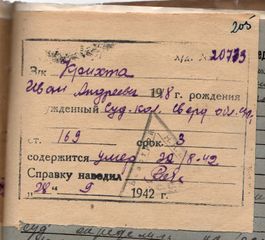 205
х/д. № 20733
З/к Крихта
Иван Андреевич 1918 г. рождения
сужденный Суд. кол. Сверд обл. суда
ст. 169 срок 3
содержится умер 22/8-42
Справку наводил
„28" 9 1942 г.
суд определил